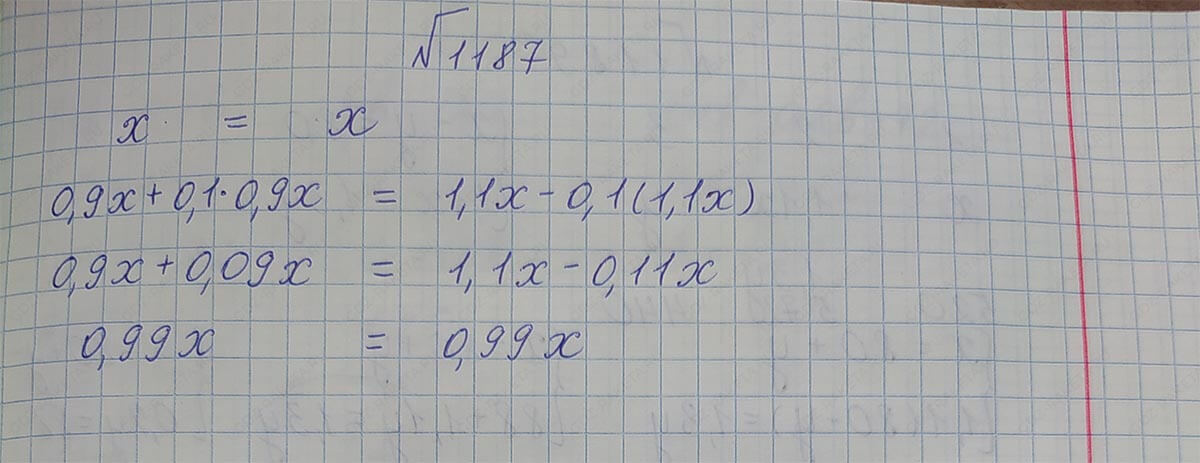 √1187
x = x
0,9x + 0,1·0,9x = 1,1x - 0,1(1,1x)
0,9x + 0,09x = 1,1x - 0,11x
0,99x = 0,99x